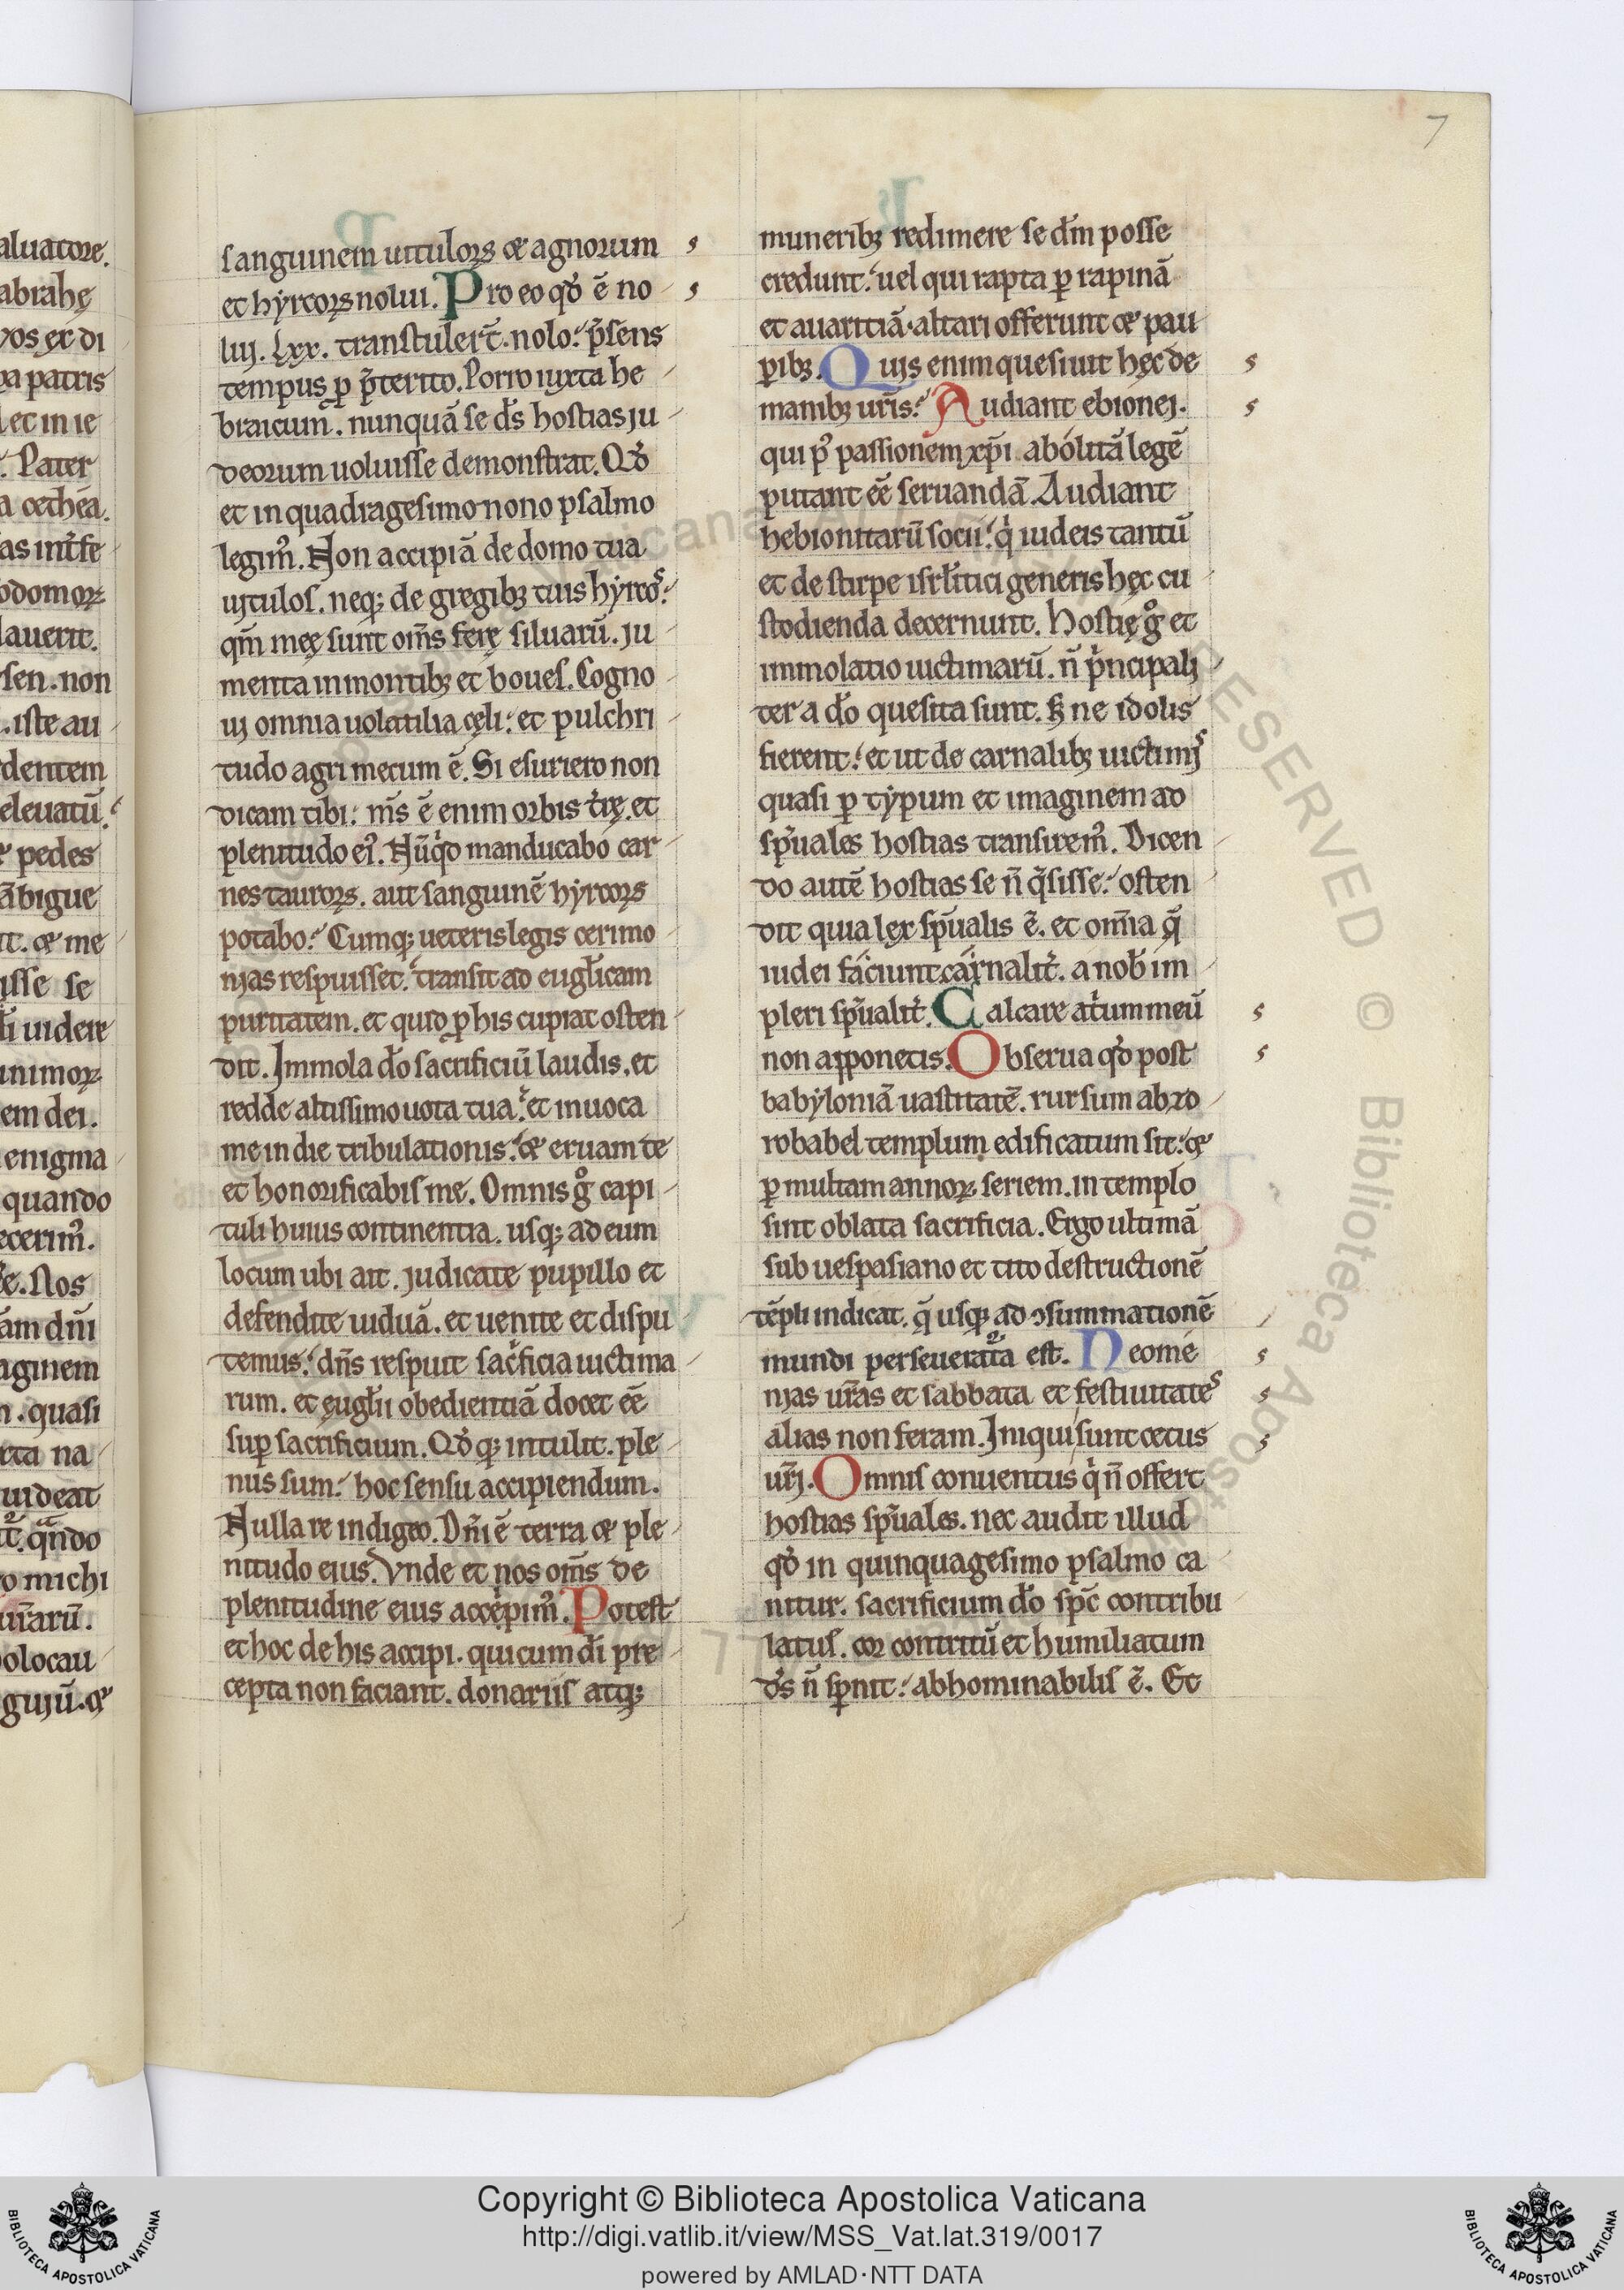 7
aluatore.
abrahę
vos ex di
pa patris
et in ie
. Pater
a œthéa.
as int̃fe
odomoꝝ
lauerit.
sen. non
. iste au
dentem
eleuatū.
pedes
ābigue
it. & me
isse se
li uidere
inimoꝝ
em dei.
enigma
quando
ecerim᷒.
Nos
ām dñi
aginem
n. quasi
xta na
uideat
q̃ndo
o michi
ur̃arū.
olocau
guịnū. &
sanguinem uitulorꝝ & agnorum
et hyrcorꝝ nolui. Pro eo qđ ē no
lui. Lxx. transtuler̄t. nolo. p̃sens
tempus ꝓ p̃terito. Porro iuxta he
braicum. nunquā se d̄s hostias iu
deorum uoluisse demonstrat. Qđ
et in quadragesimo nono psalmo
legim᷒. Non accipiā de domo tua
uitulos. neq; de gregibꝫ tuis hyrcos.
qm̄ meę sunt om̄s ferę siluarū. iu
menta in montibꝫ et boues. Cogno
ui omnia uolatilia cęli. et pulchri
tudo agri mecum ē. Si esuriero non
dicam tibi. m̄s ē enim orbis t̃rę. et
plenitudo ei᷒. Nūqͥd manducabo car
nes taurorꝝ. aut sanguinē hyrcorꝝ
potabo. Cumq; ueteris legis cerimo
nias respuisset. transit ad eugl̄icam
puritatem. et quid ꝓ his cupiat osten
dit. Immola dō sacrificiū laudis. et
redde altissimo uota tua. et inuoca
me in die tribulationis. & eruam te
et honorificabis me. Omnis gͦ capi
tuli huius continentia. usq; ad eum
locum ubi ait. iudicate pupillo et
defendite uiduā. et uenite et dispu
temus. dñs respuit sacͥficia uictima
rum. et eugl̄ii obedientiā docet eē̄
suꝑ sacrificium. Qđ q; intulit. ple
nus sum. hoc sensu accipiendum.
Nulla re indigeo. Dñi ē terra & ple
nitudo eius. Vnde et nos om̄s de
plenitudine eius accepim᷒. Potest
et hoc de his accipi. qui cum dī pre
cepta non faciant. donariis atq;
muneribꝫ redimere se dm̄ posse
credunt. uel qui rapta ꝑ rapinā
et auaritiā. altari offerunt & pau
ꝑibꝫ. Quis enim quesiuit hęc de
manibꝫ ur̃is. Audiant ebionei.
qui p᷒ passionem xp̄i abolitā legē
putant eē̄ seruandā. Audiant
hebionitarū socii. qͥ iudeis tantū
et de stirpe isrl̄itici generis hęc cu
stodienda decernunt. Hostię gͦ et
immolatio uictimarū. n̄ pͥncipali
ter a dō quesita sunt. ꝫ ne idolis
fierent. et ut de carnalibꝫ uictimis
quasi ꝑ typum et imaginem ad
sp̄uales hostias transirem᷒. Dicen
do autē hostias se n̄ q̃sisse. osten
dit quia lex sp̄ualis ē. et omīa q̃
iudei faciunt carnalit̃. a nob̄ im
pleri sp̄ualit̃. Calcare atͥum meū
non apponetis. Obserua qđ post
babyloniā uastitatē. rursum ab zo
robabel templum edificatum sit. &
ꝑ multam annoꝝ seriem. in templo
sint oblata sacrificia. Ergo ultimā
sub uespasiano et tito destructionē
tēpli indicat. q̃ usq; ad ꝯsummationē
mundi perseueratura est. Neome
nias ur̃as et sabbata et festiuitates
alias non feram. Iniqui sunt cetus
ur̃i. Omnis conuentus qͥ n̄ offert
hostias sp̄uales. nec audit illud
qđ in quinquagesimo psalmo ca
nitur. sacrificium dō sp̄c contribu
latus. cor contritū et humiliatum
d̄s n̄ sꝑnit. abhominabilis ē. Et
Copyright © Biblioteca Apostolica Vaticana
http://digi.vatlib.it/view/MSS_Vat.lat.319/0017
powered by AMLAD·NTT DATA
BIBLIOTECA APOSTOLICA VATICANA
BIBLIOTECA APOSTOLICA VATICANA